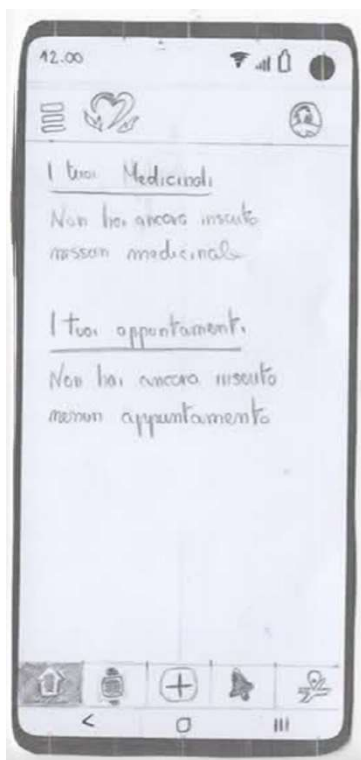 12.00
I tuoi Medicinali
Non hai ancora inserito
nessun medicinale
I tuoi appuntamenti
Non hai ancora inserito
nessun appuntamento